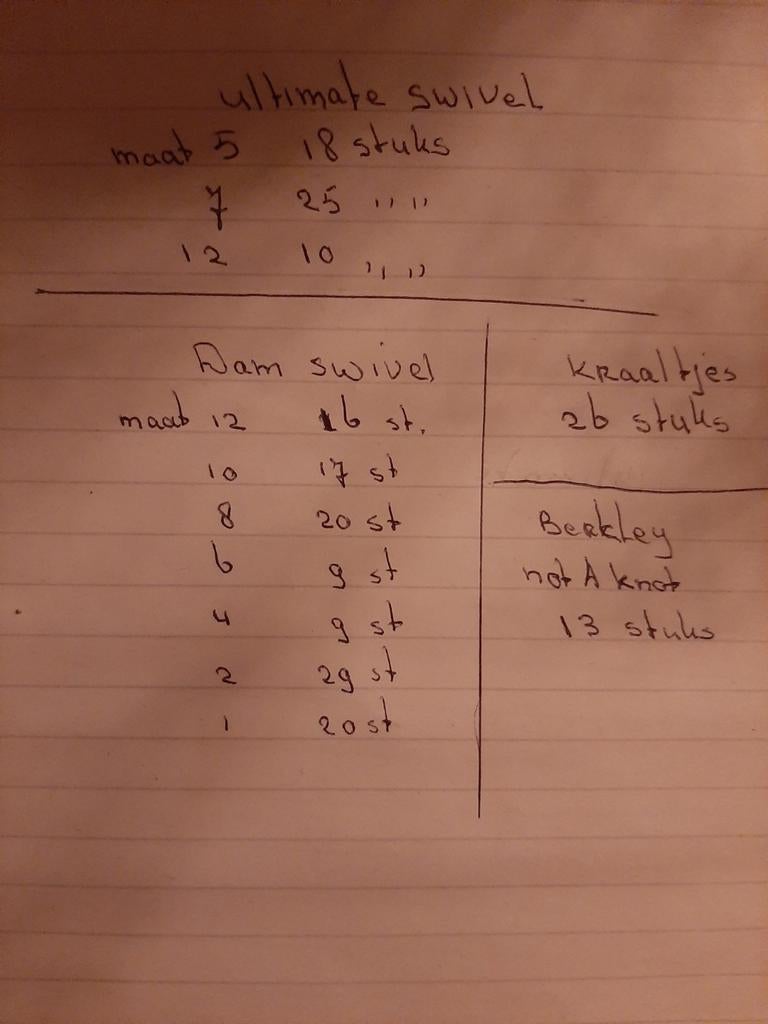 ultimate swivel
maat 5 18 stuks
7 25 ,, ,,
12 10 ,, ,,
Dam swivel
maat 12 16 st.
10 17 st
8 20 st
6 9 st
4 9 st
2 29 st
1 20 st
Kraaltjes
26 stuks
Berkley
not A knot
13 stuks